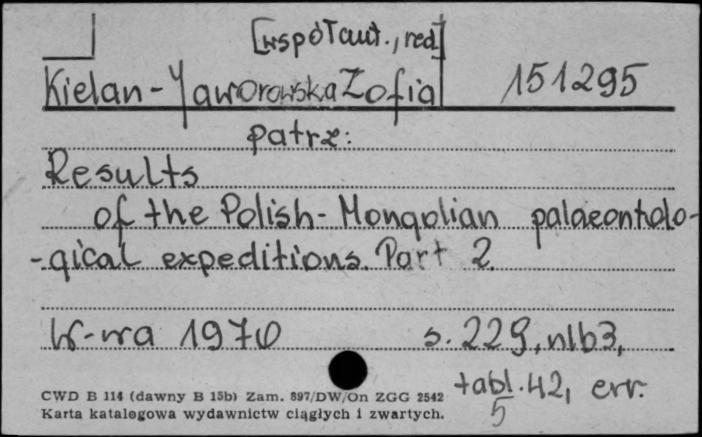 [współaut., red]
Kielan-Jaworowska Zofia 151295
patrz:
Results
of the Polish-Mongolian palaeontolo-
-gical expeditions. Part 2.
W-wa 1970 s. 229, nlb3,
tabl. 42, err.
5
CWD B 114 (dawny B 15b) Zam. 897/DW/On ZGG 2542
Karta katalogowa wydawnictw ciągłych i zwartych.